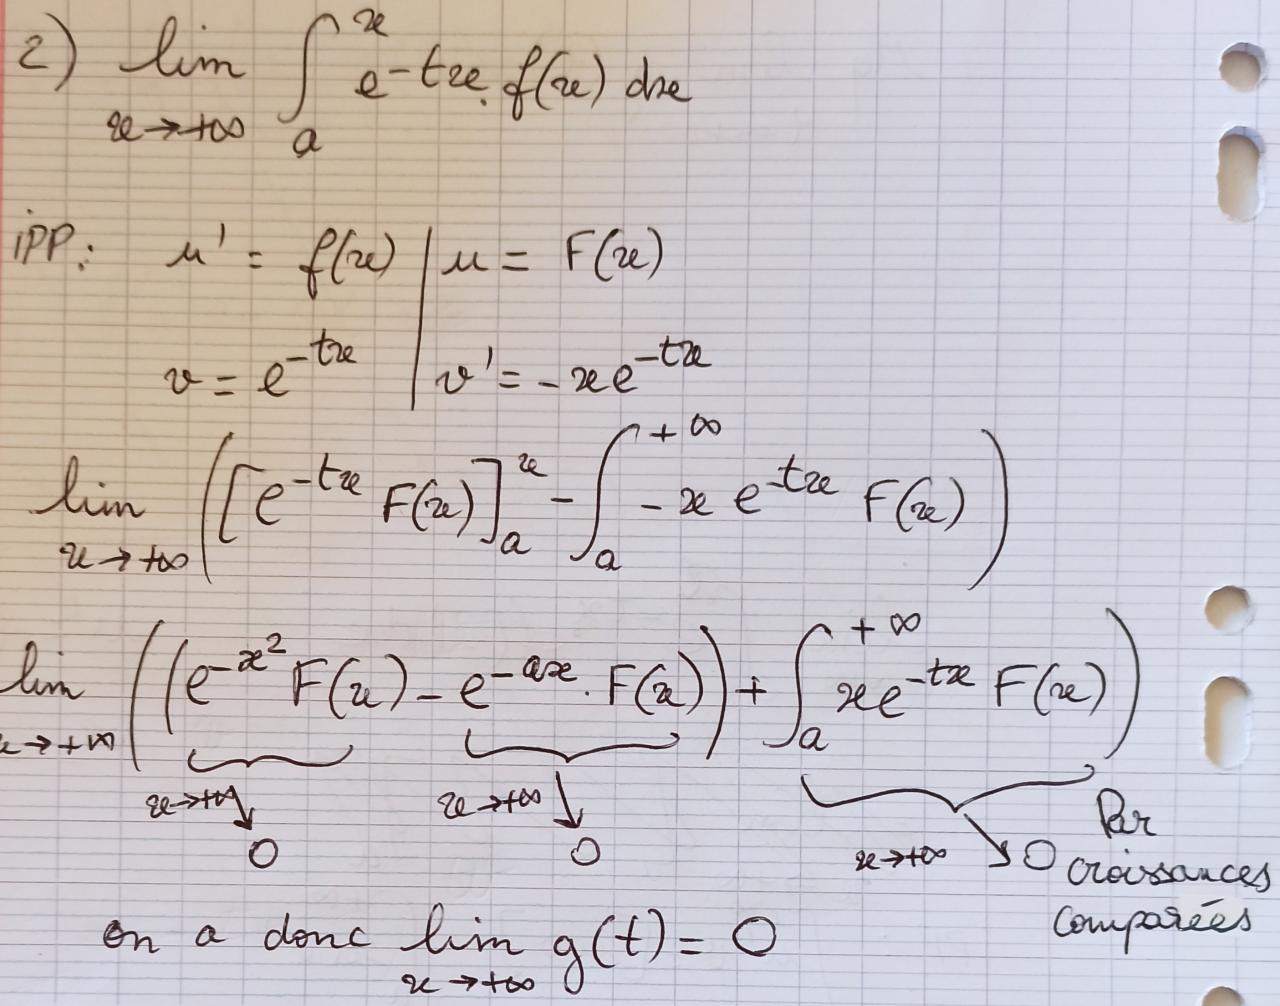 2) lim ∫ₐˣ e^{-tx}. f(x) dx
x→+∞
iPP: u' = f(x) | u = F(x)
v = e^{-tx} | v' = -xe^{-tx}
lim ([e^{-tx} F(x)]ₐˣ - ∫ₐ^{+∞} -x e^{-tx} F(x))
x→+∞
lim ((e^{-x²} F(x) - e^{-ax}. F(x)) + ∫ₐ^{+∞} xe^{-tx} F(x))
x→+∞
x→+∞ x→+∞ x→+∞ Par
0 0 0 croissances
comparées
on a donc lim g(t) = 0
x→+∞